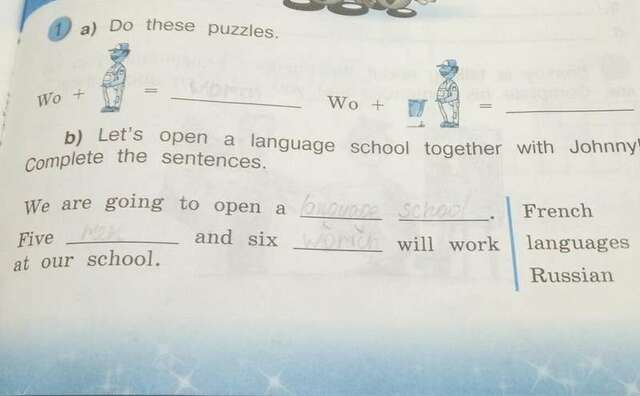 1 a) Do these puzzles.
Wo + = women Wo + = ____
b) Let's open a language school together with Johnny!
Complete the sentences.
We are going to open a language school. French
Five men and six women will work languages
at our school. Russian